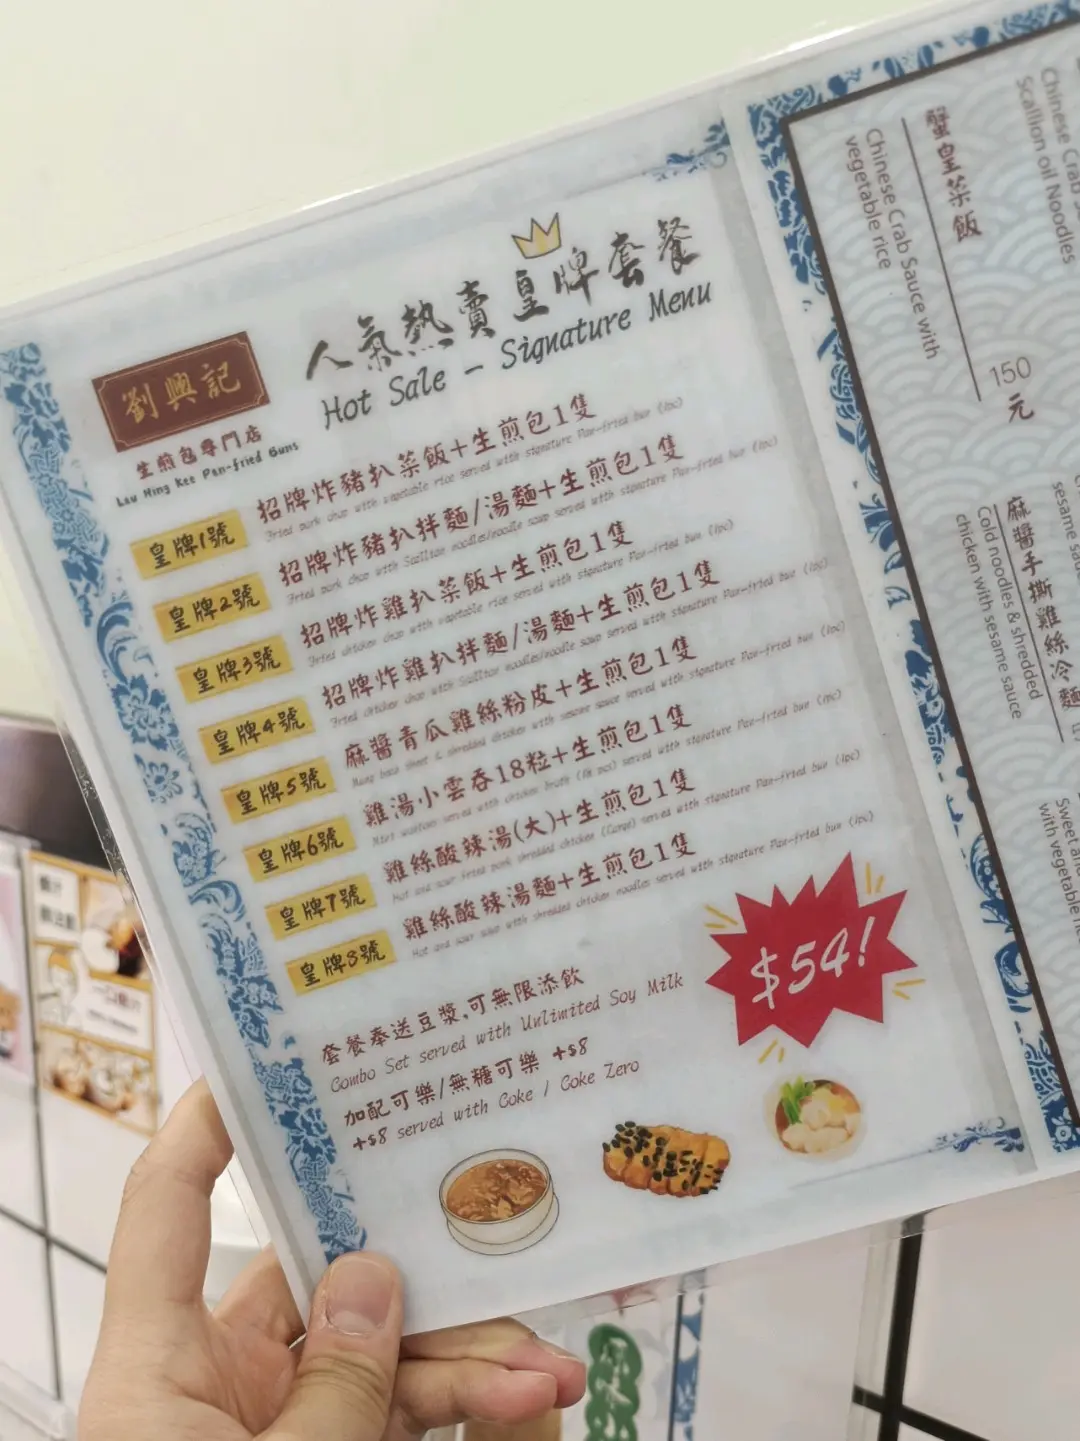 人氣熱賣皇牌套餐
Hot Sale - Signature Menu
劉興記
生煎包專門店
Lau Hing Kee Pan-fried Buns
皇牌1號 招牌炸豬扒菜飯+生煎包1隻
Fried pork chop with vegetable rice served with signature Pan-fried bun (1pc)
皇牌2號 招牌炸豬扒拌麵/湯麵+生煎包1隻
Fried pork chop with Scallion noodles/noodle soup served with signature Pan-fried bun (1pc)
皇牌3號 招牌炸雞扒菜飯+生煎包1隻
Fried chicken chop with vegetable rice served with signature Pan-fried bun (1pc)
皇牌4號 招牌炸雞扒拌麵/湯麵+生煎包1隻
Fried chicken chop with Scallion noodles/noodle soup served with signature Pan-fried bun (1pc)
皇牌5號 麻醬青瓜雞絲粉皮+生煎包1隻
Mung bean sheet & shredded chicken with sesame sauce served with signature Pan-fried bun (1pc)
皇牌6號 雞湯小雲吞18粒+生煎包1隻
Mini wontons served with chicken broth (18 pcs) served with signature Pan-fried bun (1pc)
皇牌7號 雞絲酸辣湯(大)+生煎包1隻
Hot and sour fried pork shredded chicken (Large) served with signature Pan-fried bun (1pc)
皇牌8號 雞絲酸辣湯麵+生煎包1隻
Hot and sour soup with shredded chicken noodles served with signature Pan-fried bun (1pc)
$54!
套餐奉送豆漿,可無限添飲
Combo Set served with Unlimited Soy Milk
加配可樂/無糖可樂 +$8
+$8 served with Coke / Coke Zero
Chinese Crab
Scallion oil Noodles
蟹皇菜飯
Chinese Crab Sauce with
vegetable rice
150
元
麻醬手撕雞絲冷麵
Cold noodles & shredded
chicken with sesame sauce
with vegetable